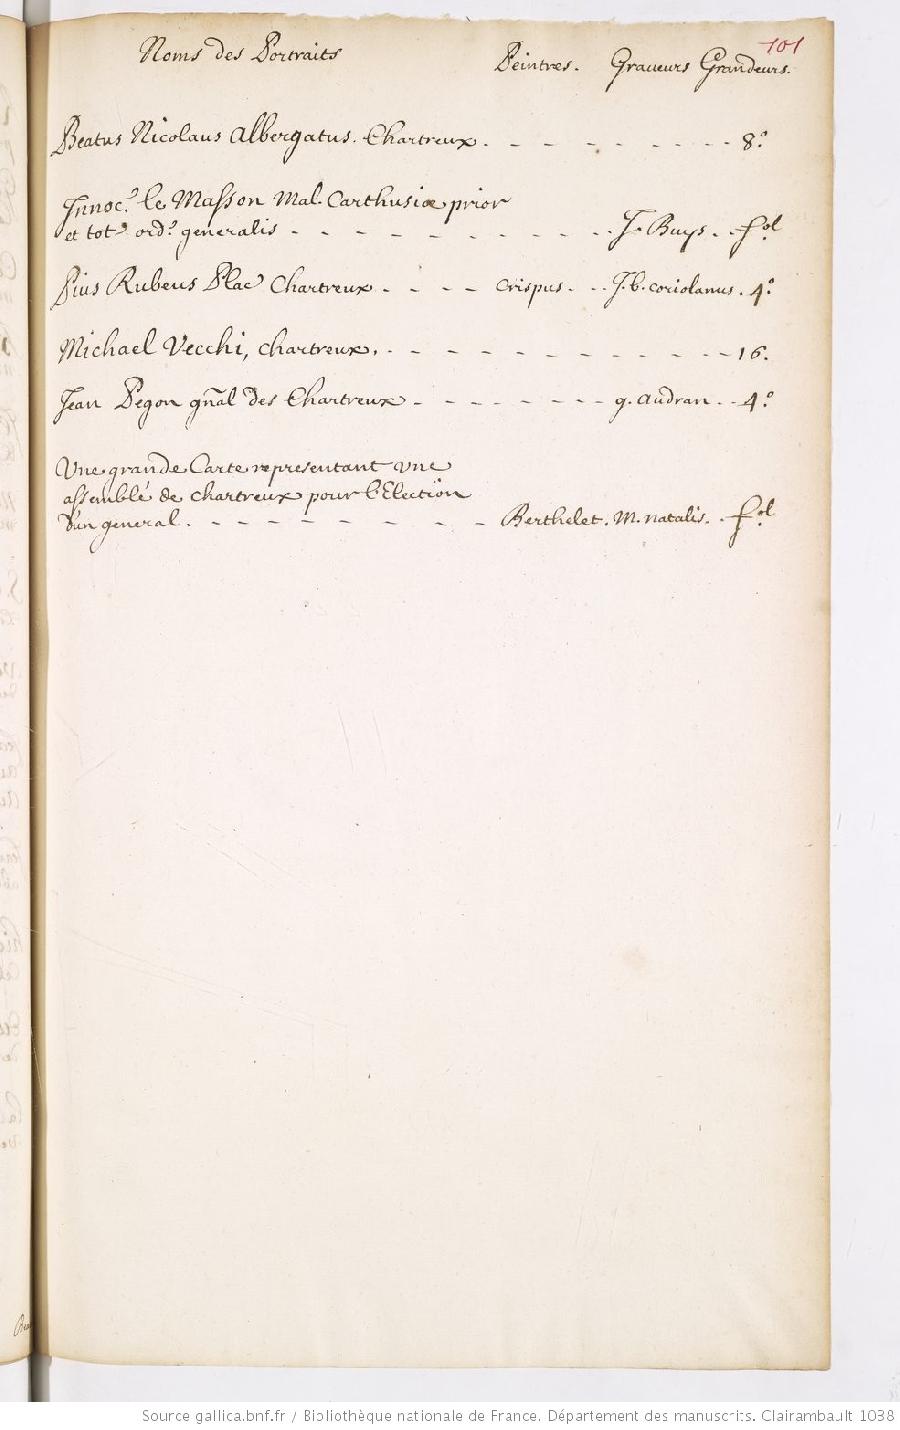 101
Noms des Portraits Peintres. Graveurs Grandeurs.
Beatus Nicolaus Albergatus. Chartreux. - - - - - - - - - - 8.º
Innoc.s le Masson Mal. Carthusiæ prior
et tots ord.s generalis - - - - - - - - - - J. Buys. - fol.
Pius Rubeus Plac Chartreux. - - - - Crispus. - - J. b. coriolanus. 4.º
Michael Vecchi, Chartreux. - - - - - - - - - - - - 16.
Jean Pegon gñal des Chartreux - - - - - - - - g. Audran. - - 4.º
Une grande Carte representant une
assemblé de chartreux pour l'Election
d'un general. - - - - - - - - Berthelet. M. natalis. - fol.
Source gallica.bnf.fr / Bibliothèque nationale de France. Département des manuscrits. Clairambault 1038